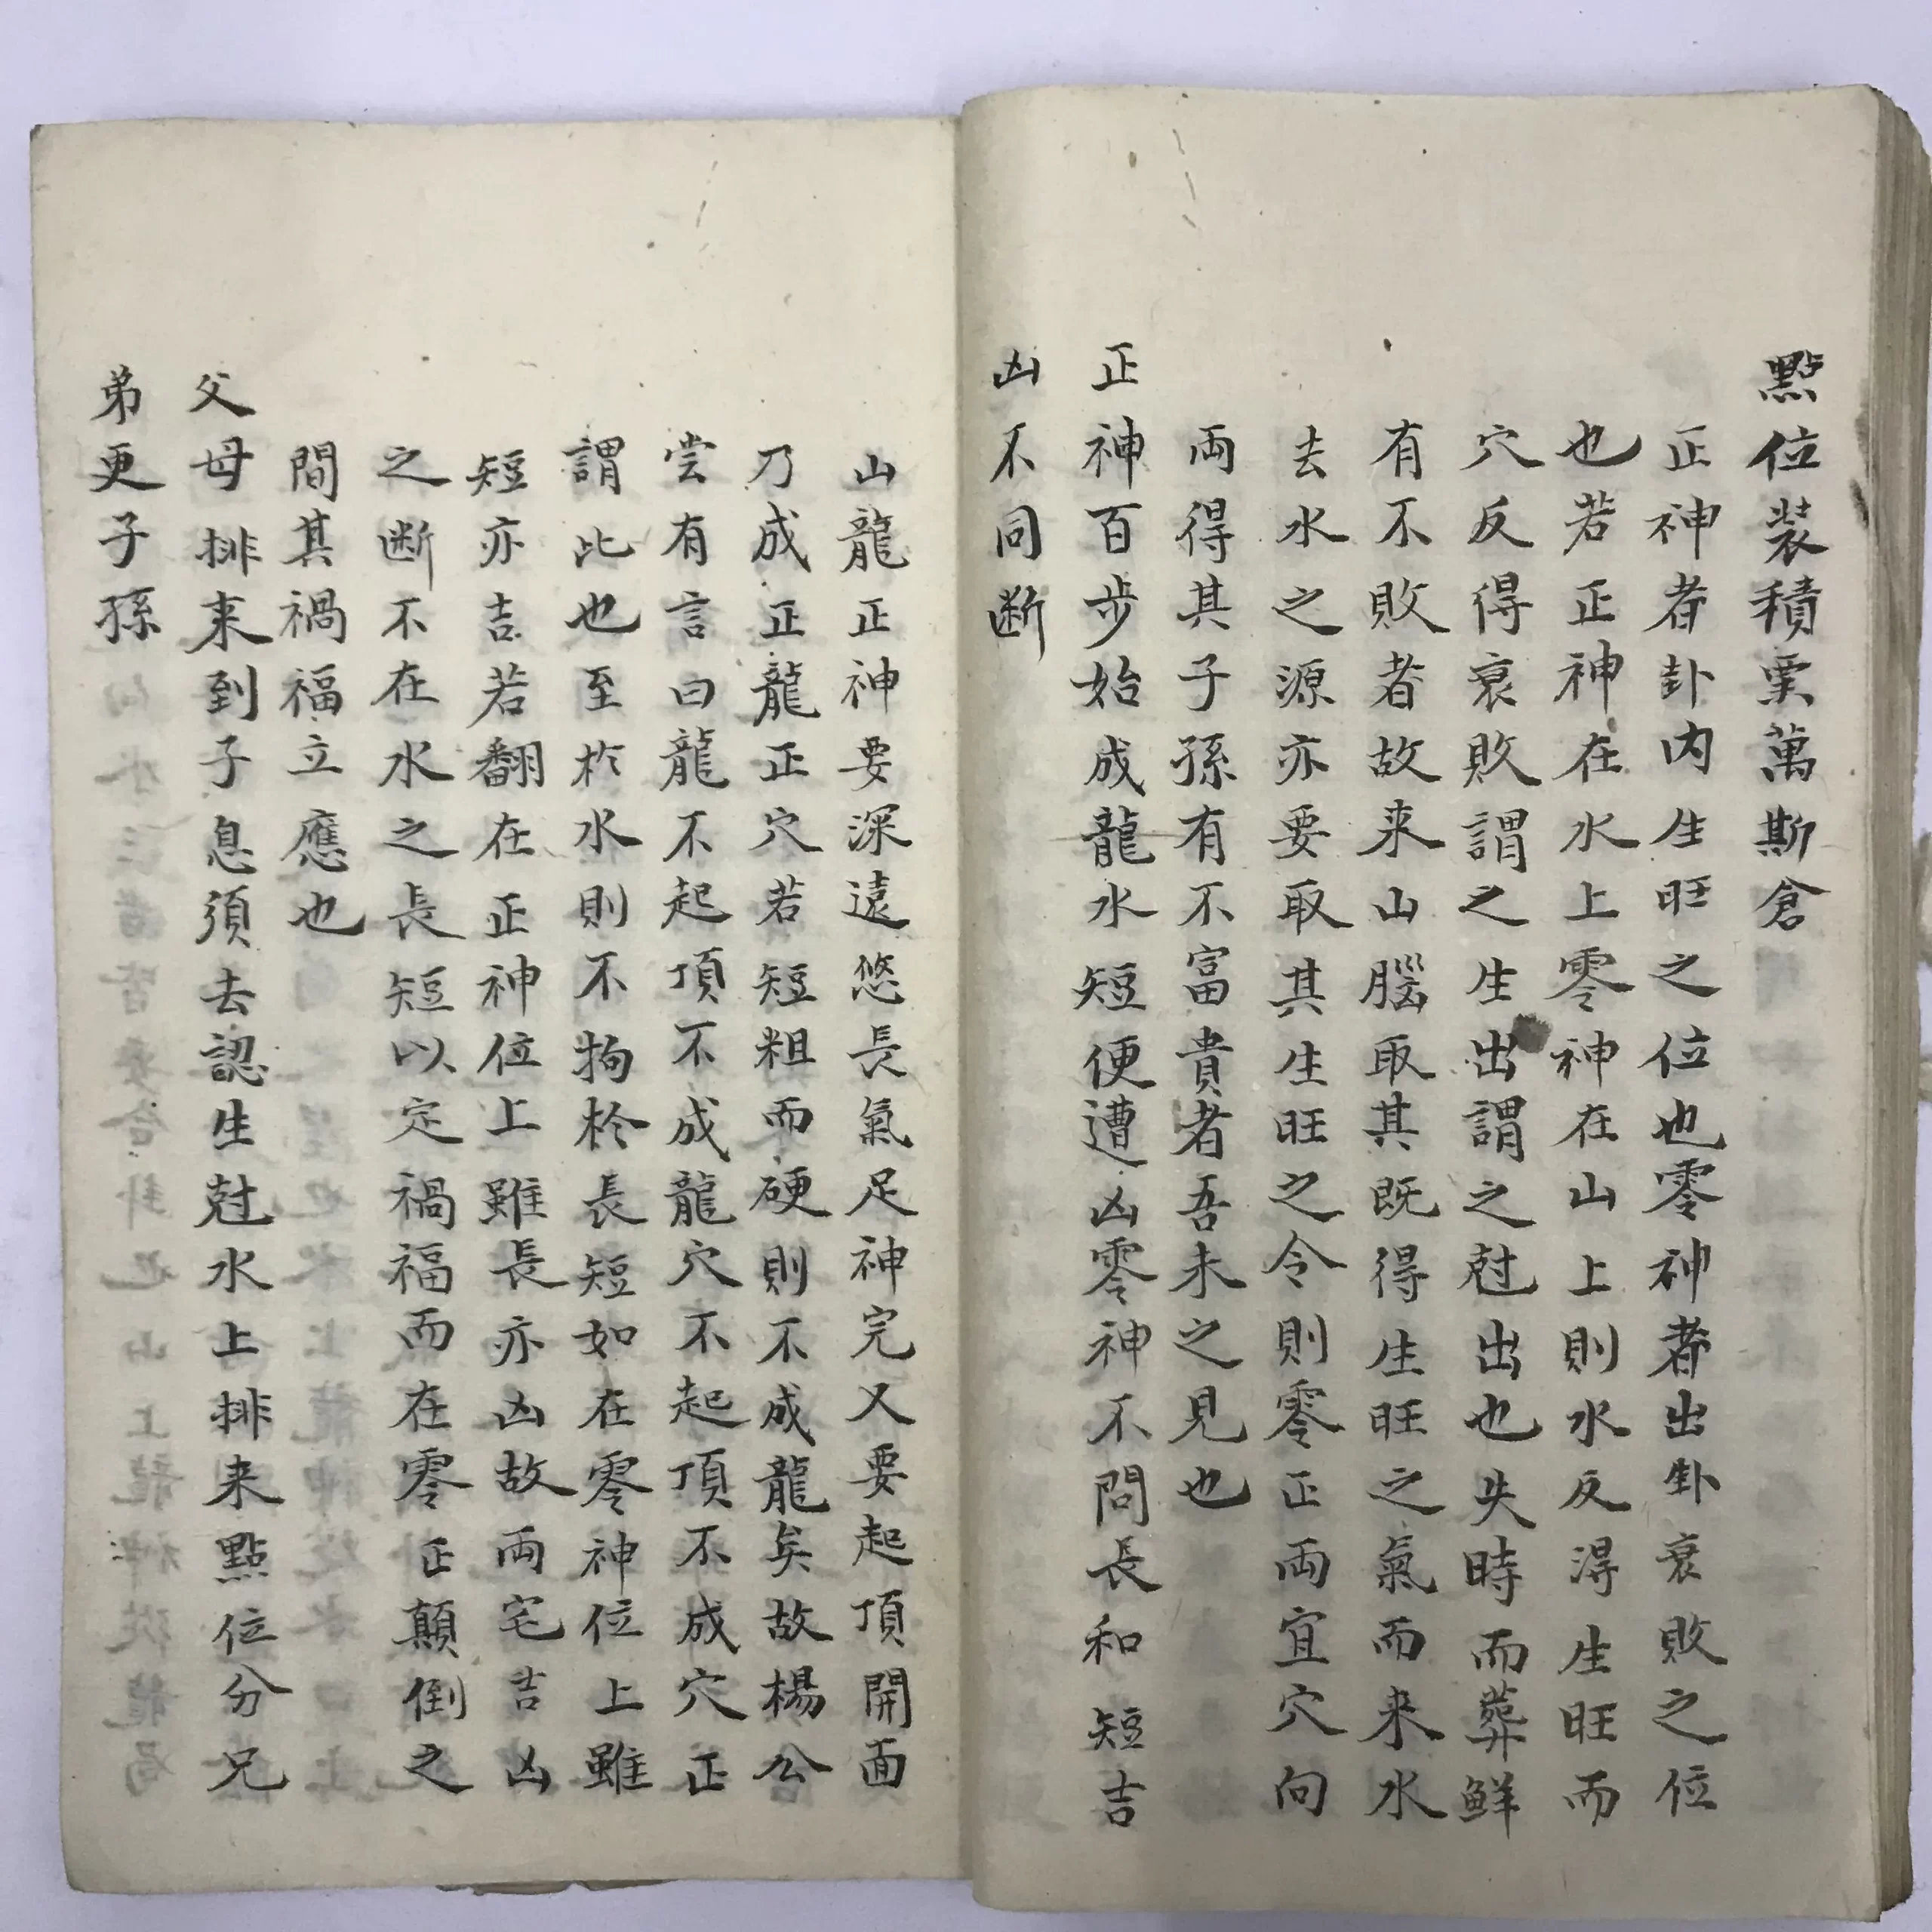 點位装積粟萬斯倉
正神者卦内生旺之位也零神者出卦衰敗之位
也若正神在水上零神在山上則水反淂生旺而
穴反得衰敗謂之生出謂之尅出也失時而葬鮮
有不敗者故来山腦取其既得生旺之氣而来水
去水之源亦要取其生旺之令則零正両宜穴向
両得其子孫有不富貴者吾未之見也
正神百步始成龍水短便遭凶零神不問長和短吉
凶不同断
山龍正神要深遠悠長氣足神完又要起頂開面
乃成正龍正穴若短粗而硬則不成龍矣故楊公
尝有言曰龍不起頂不成龍穴不起頂不成穴正
謂此也至扵水則不拘扵長短如在零神位上雖
短亦吉若翻在正神位上雖長亦凶故両宅吉凶
之断不在水之長短以定禍福而在零正顛倒之
間其禍福立應也
父母排来到子息須去認生尅水上排来點位分兄
弟更子孫